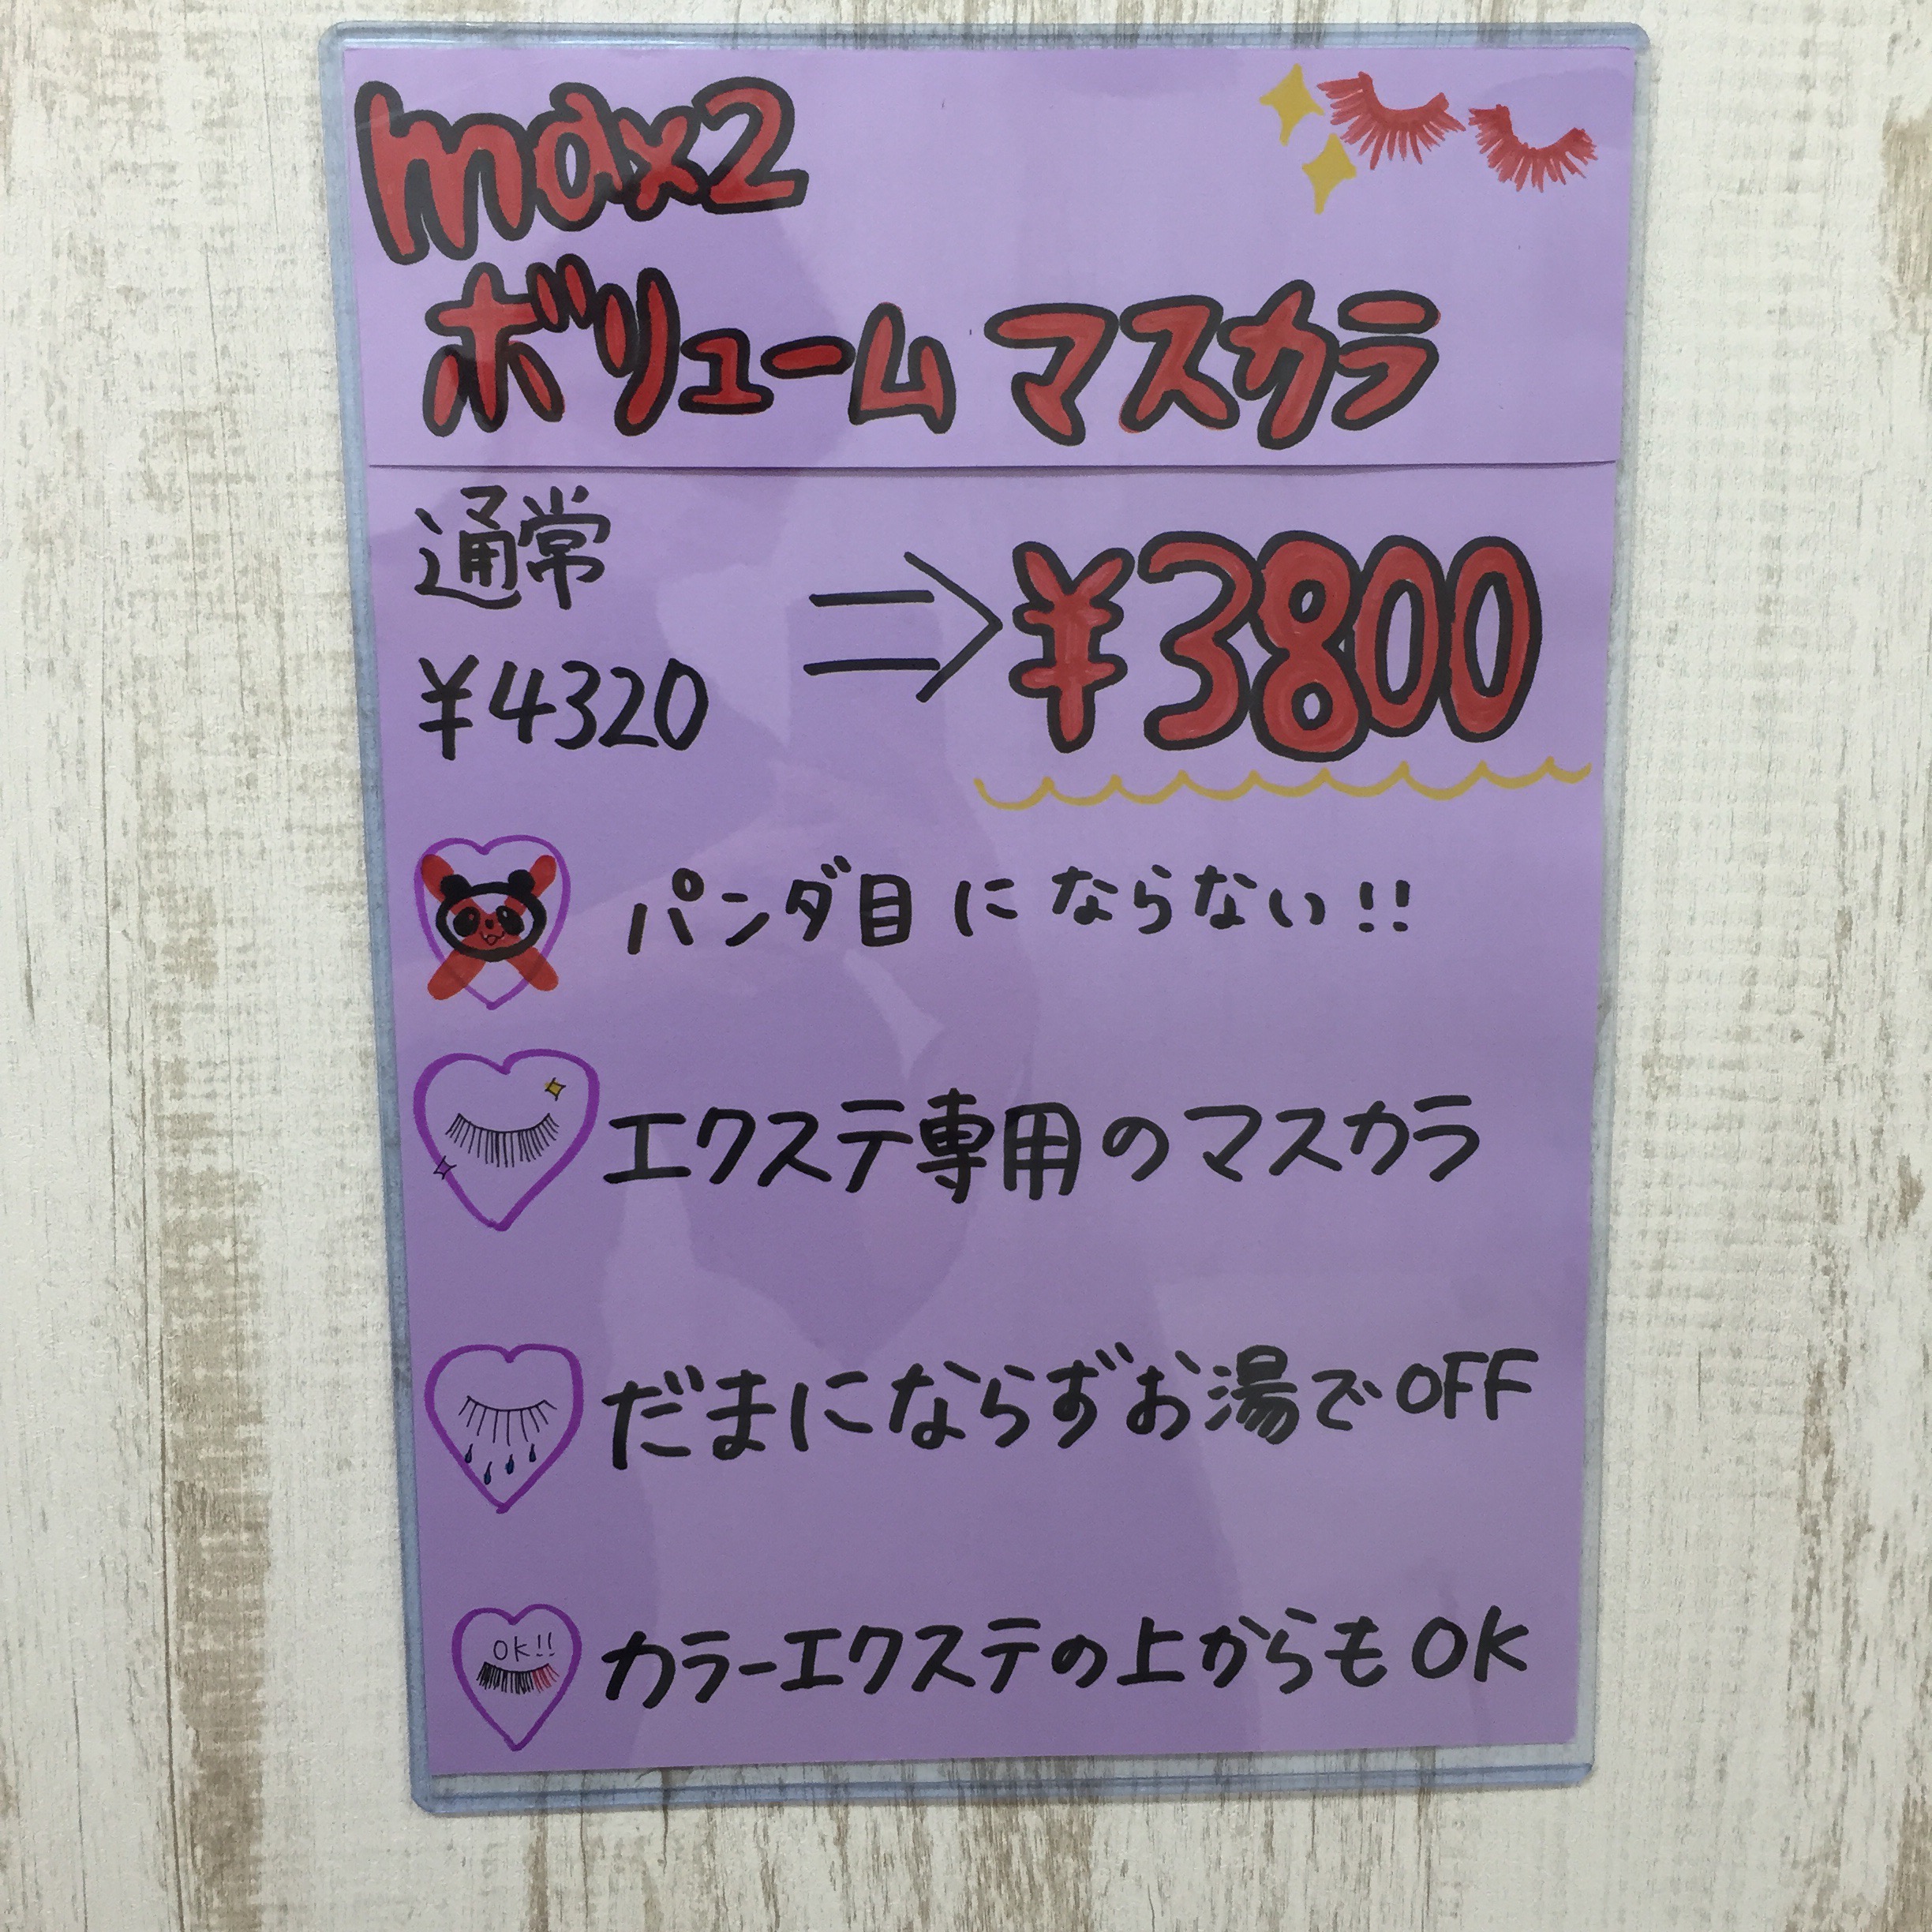 max2
ボリューム マスカラ
通常
¥4320
⇒ ¥3800
パンダ目にならない!!
エクステ専用のマスカラ
だまにならずお湯でOFF
OK!!
カラーエクステの上からもOK